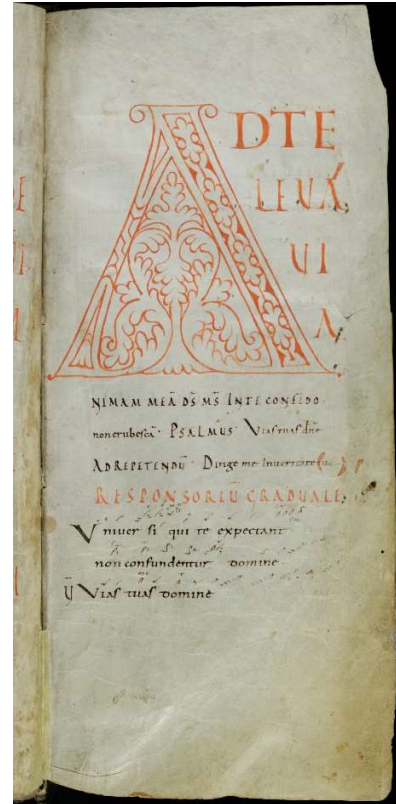 AD TE
LEVA
VI
A
NIMAM MEĀ DS̄ MS̄ INTE CONFIDO
non erubescā· PSALMUS· Vias tuas dn̄e
AD REPETENDŪ· Dirige me in veritate tua
RESPONSORIŪ GRADUALE,
Vniuersi qui te expectant
non confundentur domine
Ꝟ Vias tuas domine